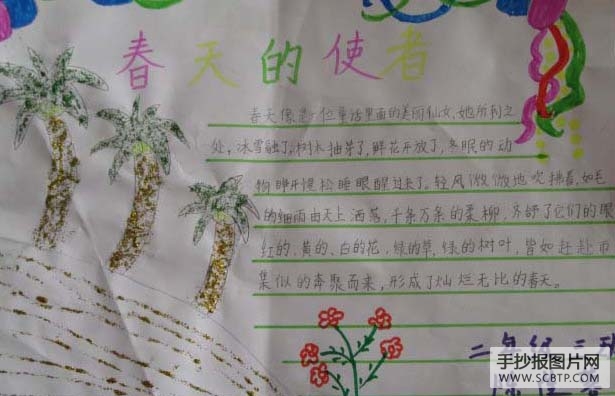 春天的使者
春天像是一位童话里面的美丽仙女,她所到之
处,冰雪融了,树木抽芽了,鲜花开放了,冬眠的动
物睁开惺松睡眼醒过来了。轻风微微地吹拂着,如毛
的细雨由天上洒落,千条万条的柔柳,齐舒了它们的
红的、黄的、白的花,绿的草,绿的树叶,皆如赶赴市
集似的奔聚而来,形成了灿烂无比的春天。
二年级三班
手抄报图片网
WWW.SCBTP.COM